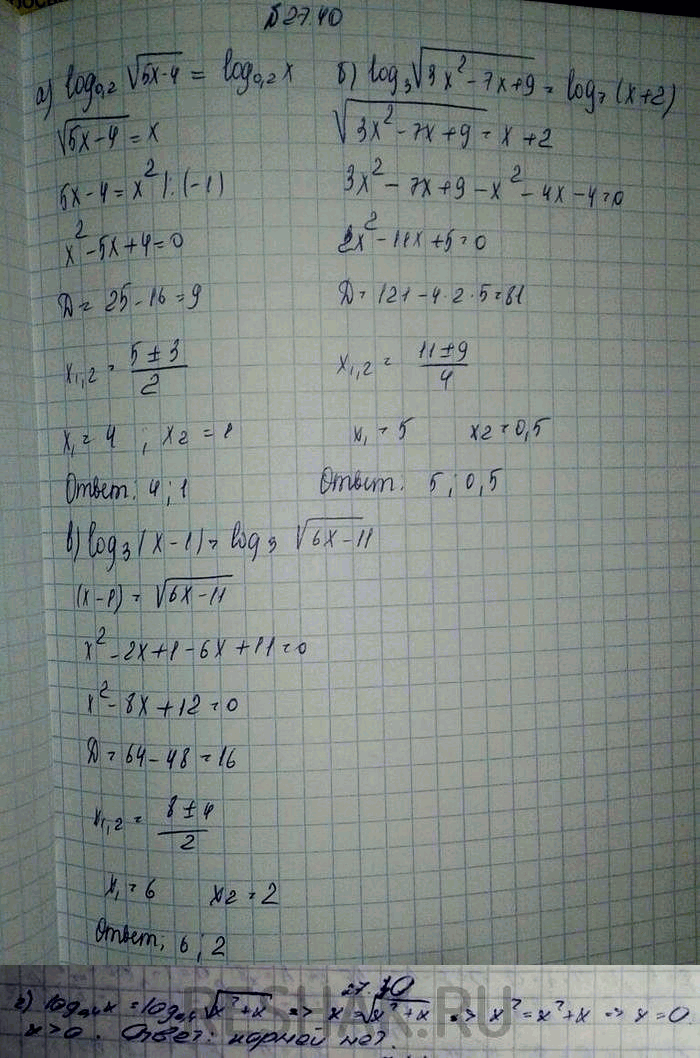 №27.40
а) log₀,₂ √(5x-4) = log₀,₂ x
√(5x-4) = x
5x-4 = x² |:(-1)
x²-5x+4=0
D = 25-16=9
x₁,₂ = (5±3)/2
x₁=4 ; x₂=1
Ответ: 4; 1
б) log₃ √(3x²-7x+9) = log₇ (x+2)
√(3x²-7x+9) = x+2
3x²-7x+9-x²-4x-4=0
2x²-11x+5=0
D=121-4·2·5=81
x₁,₂ = (11±9)/4
x₁=5 x₂=0,5
Ответ: 5; 0,5
в) log₃ (x-1) = log₃ √(6x-11)
(x-1) = √(6x-11)
x²-2x+1-6x+11=0
x²-8x+12=0
D=64-48=16
x₁,₂ = (8±4)/2
x₁=6 x₂=2
Ответ: 6; 2
27.40
г) log₀,₄ x = log₀,₄ √(x²+x) => x=√(x²+x) => x²=x²+x => x=0
x>0. Ответ: корней нет.
RESHAK.RU